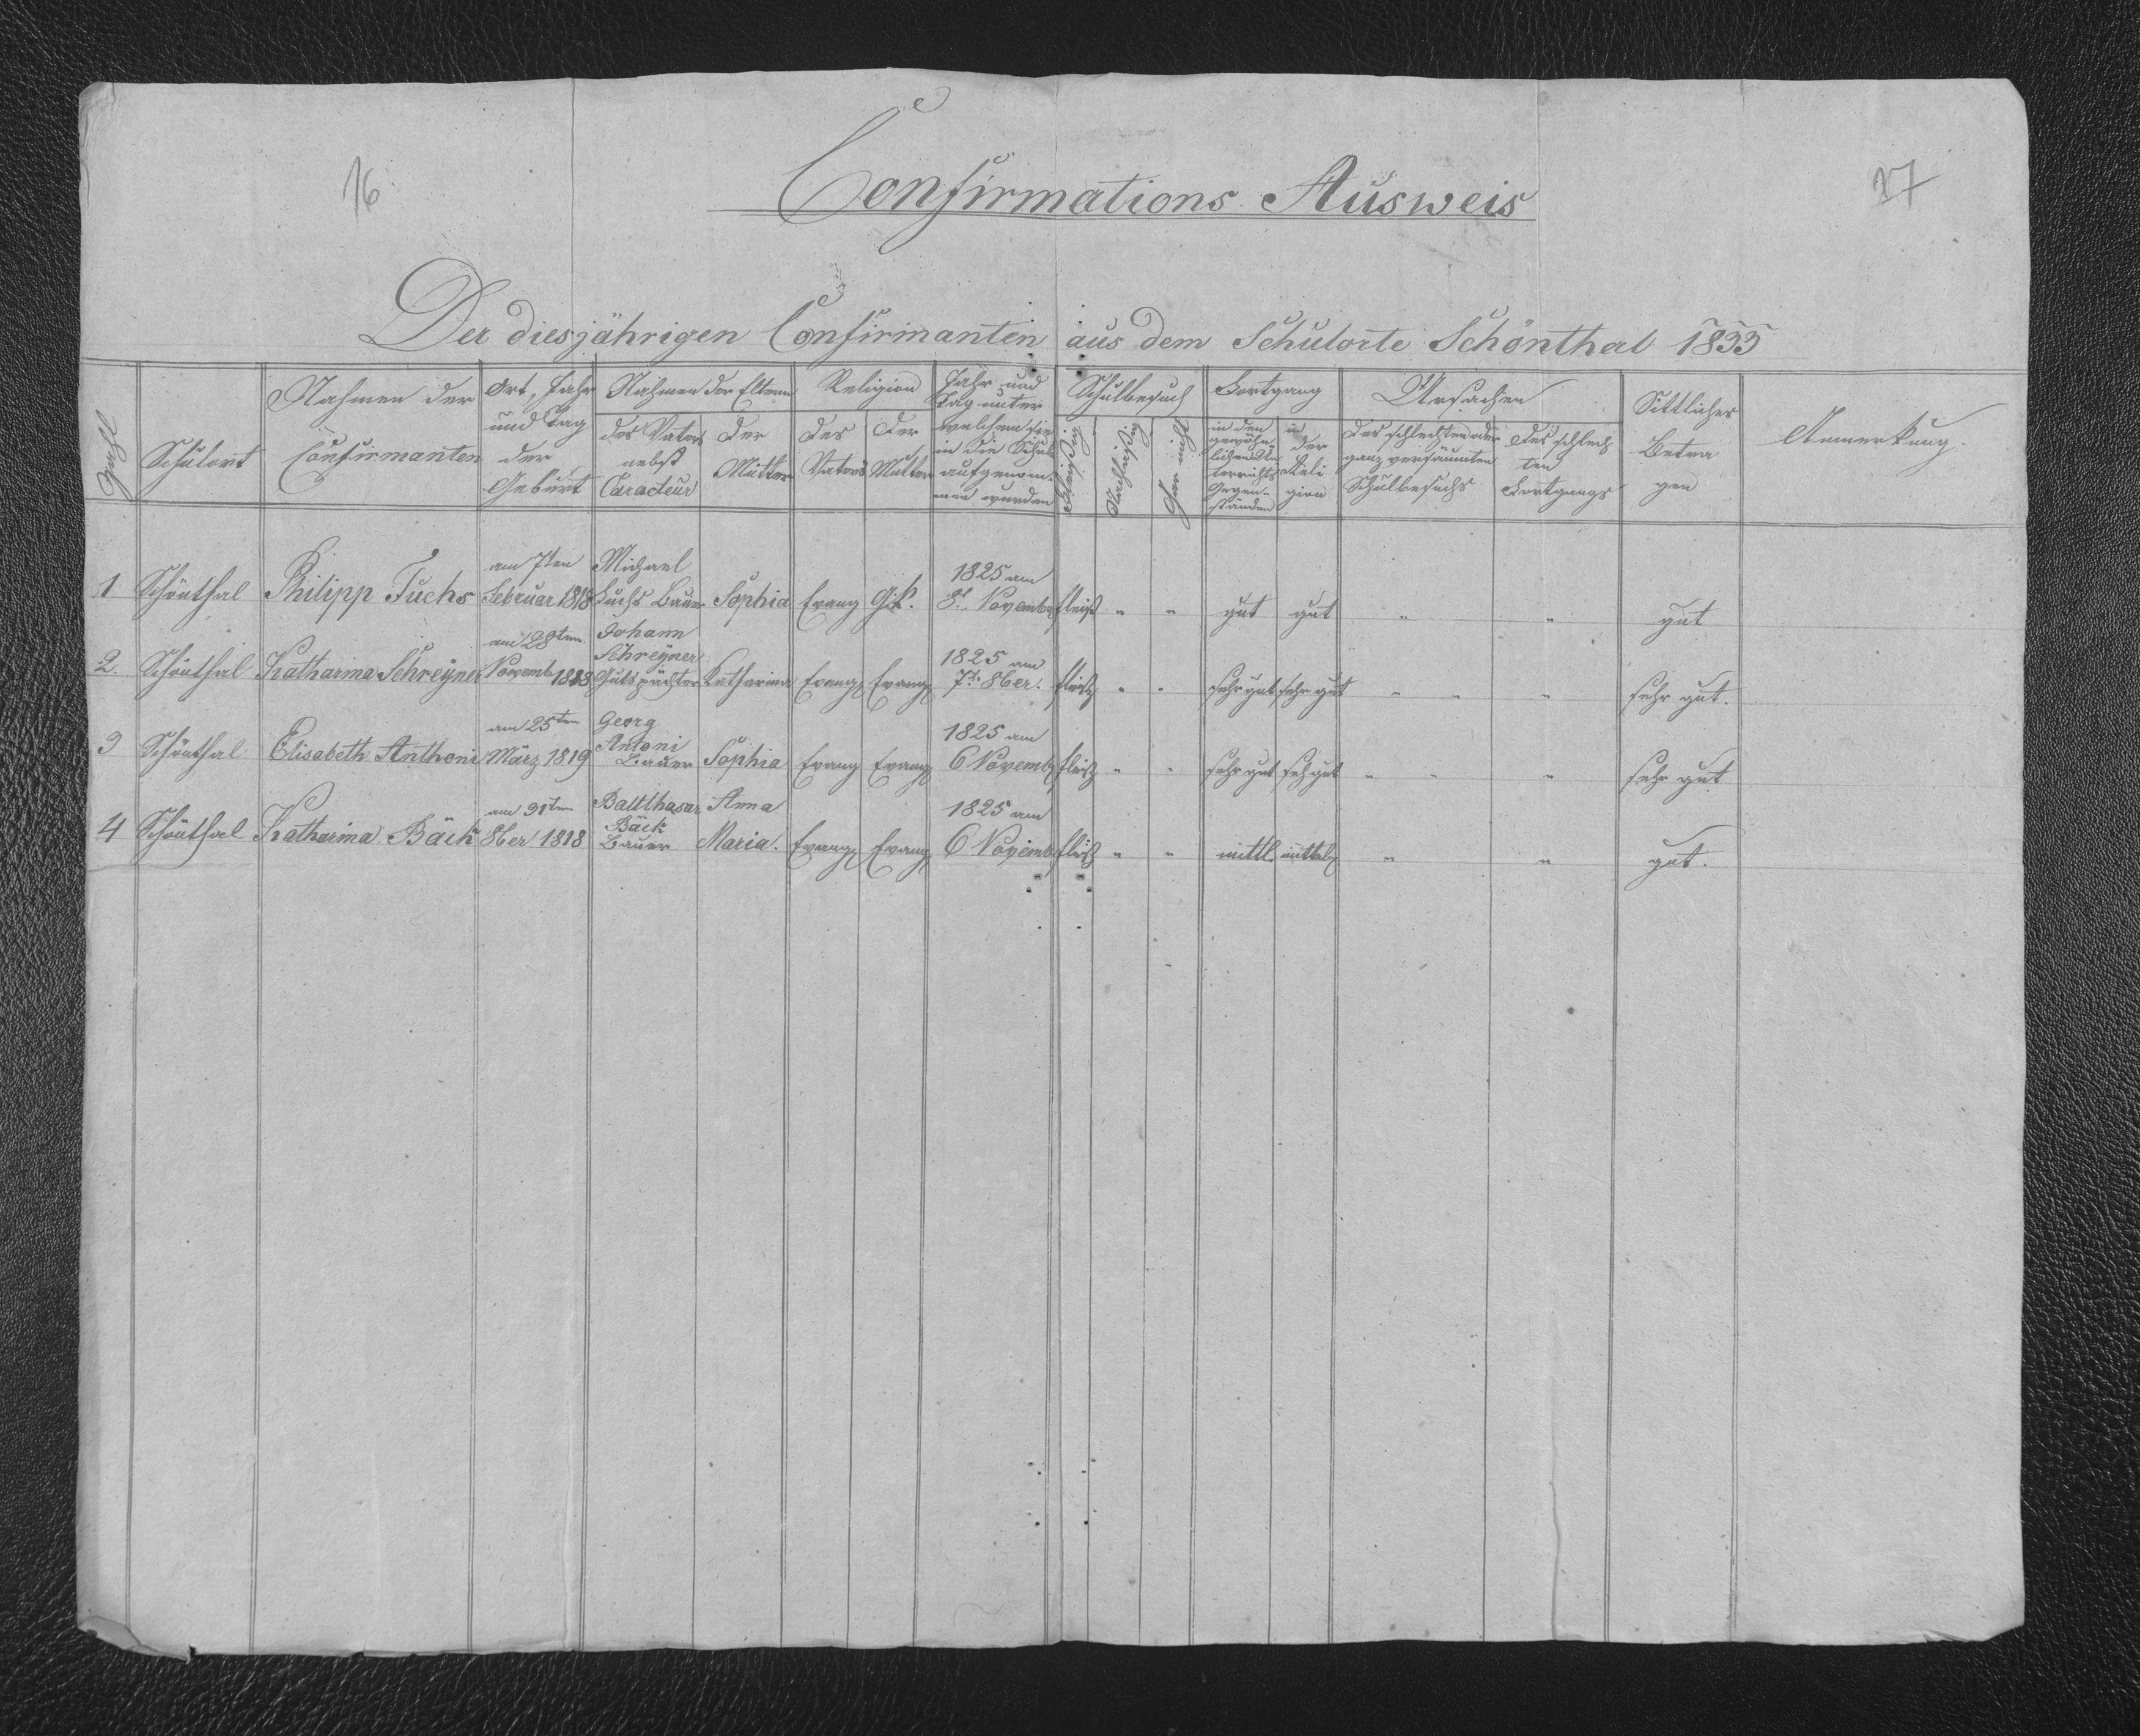 16
27
Confirmations Ausweis
Der diesjährigen Confirmanten aus dem Schulorte Schönthal 1833
Zahl
Schulort
Nahmen der Confirmanten
Ort, Jahr und Tag der Geburt
Nahmen der Eltern
des Vaters nebst Caracteur
der Mutter
Religion
des Vaters
der Mutter
Jahr und Tag unter welchem sie in die Schule aufgenommen wurden
Schulbesuch
Fleißig
Nachläßig
Gar nicht
Fortgang
in den gewöhnlichen Unterrichts Gegenständen
in der Religion
Ursachen
des schlechten oder ganz versäumten Schulbesuchs
des schlechten Fortgangs
Sittliches Betragen
Anmerkung.
1 Schönthal Philipp Fuchs am 7ten Februar 1818 Michael Fuchs Bauer Sophia Evang 1825 am 8t Novemb fleiß " " gut gut " " gut
2. Schönthal Katharina Schreyner am 28ten Novemb 1818 Johann Schreyner Gutspächter Katharina Evang Evang 1825 am 7t 8ber. fleiß " " sehr gut sehr gut " " " sehr gut.
3 Schönthal Elisabeth Anthoni am 25ten März 1819 Georg Antoni Bauer Sophia Evang Evang 1825 am 6 Novemb fleiß " " sehr gut seh gut " " " sehr gut
4 Schönthal Katharina Bäck am 31ten 8ber 1818 Baltthasar Bäck Bauer Anna Maria. Evang Evang 1825 am 6 Novemb fleiß " " mittl mittelm " " gut.